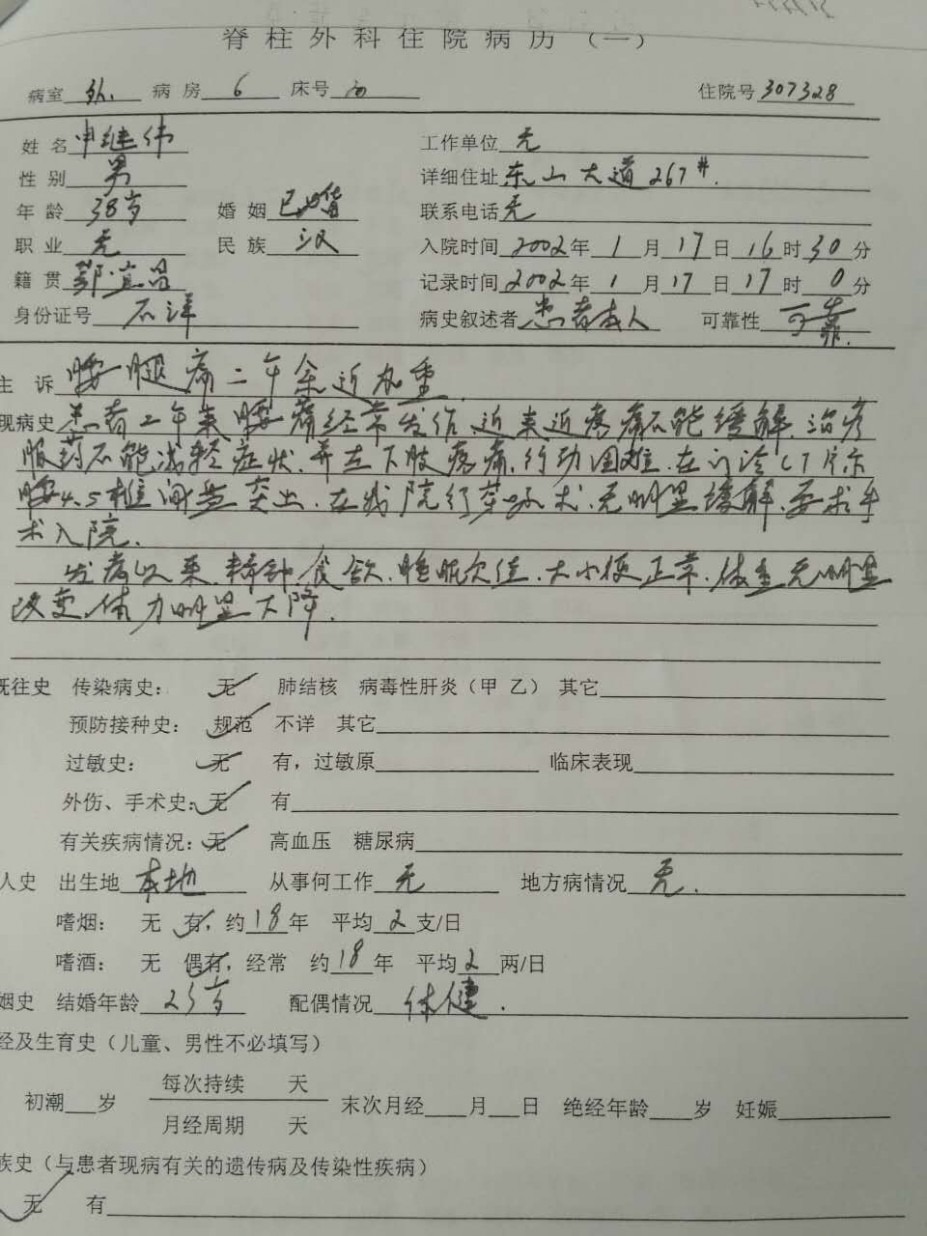 脊柱外科住院病历（一）
病室 外 病房 6 床号 加 住院号 307328
姓名 申继伟 工作单位 无
性别 男 详细住址 东山大道267#.
年龄 38岁 婚姻 已婚 联系电话 无
职业 无 民族 汉 入院时间 2002年 1 月 17 日 16 时 30 分
籍贯 宜昌 记录时间 2002年 1 月 17 日 17 时 0 分
身份证号 不详 病史叙述者 患者本人 可靠性 可靠.
主诉 腰腿痛二年余近加重
现病史 患者二年来腰痛经常发作,近来疼痛不能缓解.治疗
服药不能减轻症状.并左下肢疼痛,行动困难.在门诊CT片示
腰4.5椎间盘突出.在我院行 术.无明显缓解.要求手
术入院.
发病以来.精神.食欲.睡眠欠佳.大小便正常.体重无明显
改变.体力明显下降.
既往史 传染病史： 无 肺结核 病毒性肝炎（甲 乙） 其它
预防接种史： 规范 不详 其它
过敏史： 无 有，过敏原 临床表现
外伤、手术史：无 有
有关疾病情况：无 高血压 糖尿病
人史 出生地 本地 从事何工作 无 地方病情况 无.
嗜烟： 无 有，约 18 年 平均 2 支/日
嗜酒： 无 偶有，经常 约 18 年 平均 2 两/日
姻史 结婚年龄 25岁 配偶情况 体健.
经及生育史（儿童、男性不必填写）
每次持续 天
初潮 岁 末次月经 月 日 绝经年龄 岁 妊娠
月经周期 天
族史（与患者现病有关的遗传病及传染性疾病）
无 有